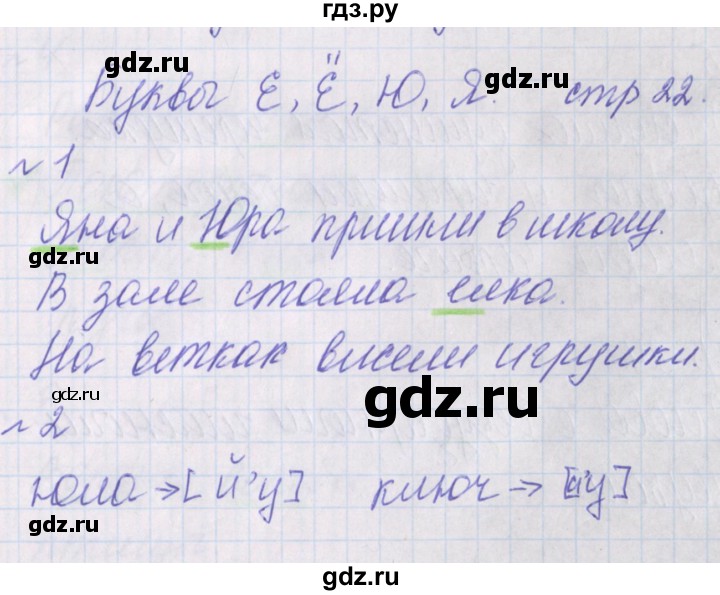 гдз.ру
gdz.ru
Буквы Е, Ё, Ю, Я. стр 22.
gdz.ru
№1
Яна и Юра пришли в школу.
gdz.ru
gdz.ru
В зале стояла елка.
На ветках висели игрушки.
gdz.ru
gdz.ru
№2
юла → [й'у] ключ → [л'у]
gdz.ru
gdz.ru
gdz.ru